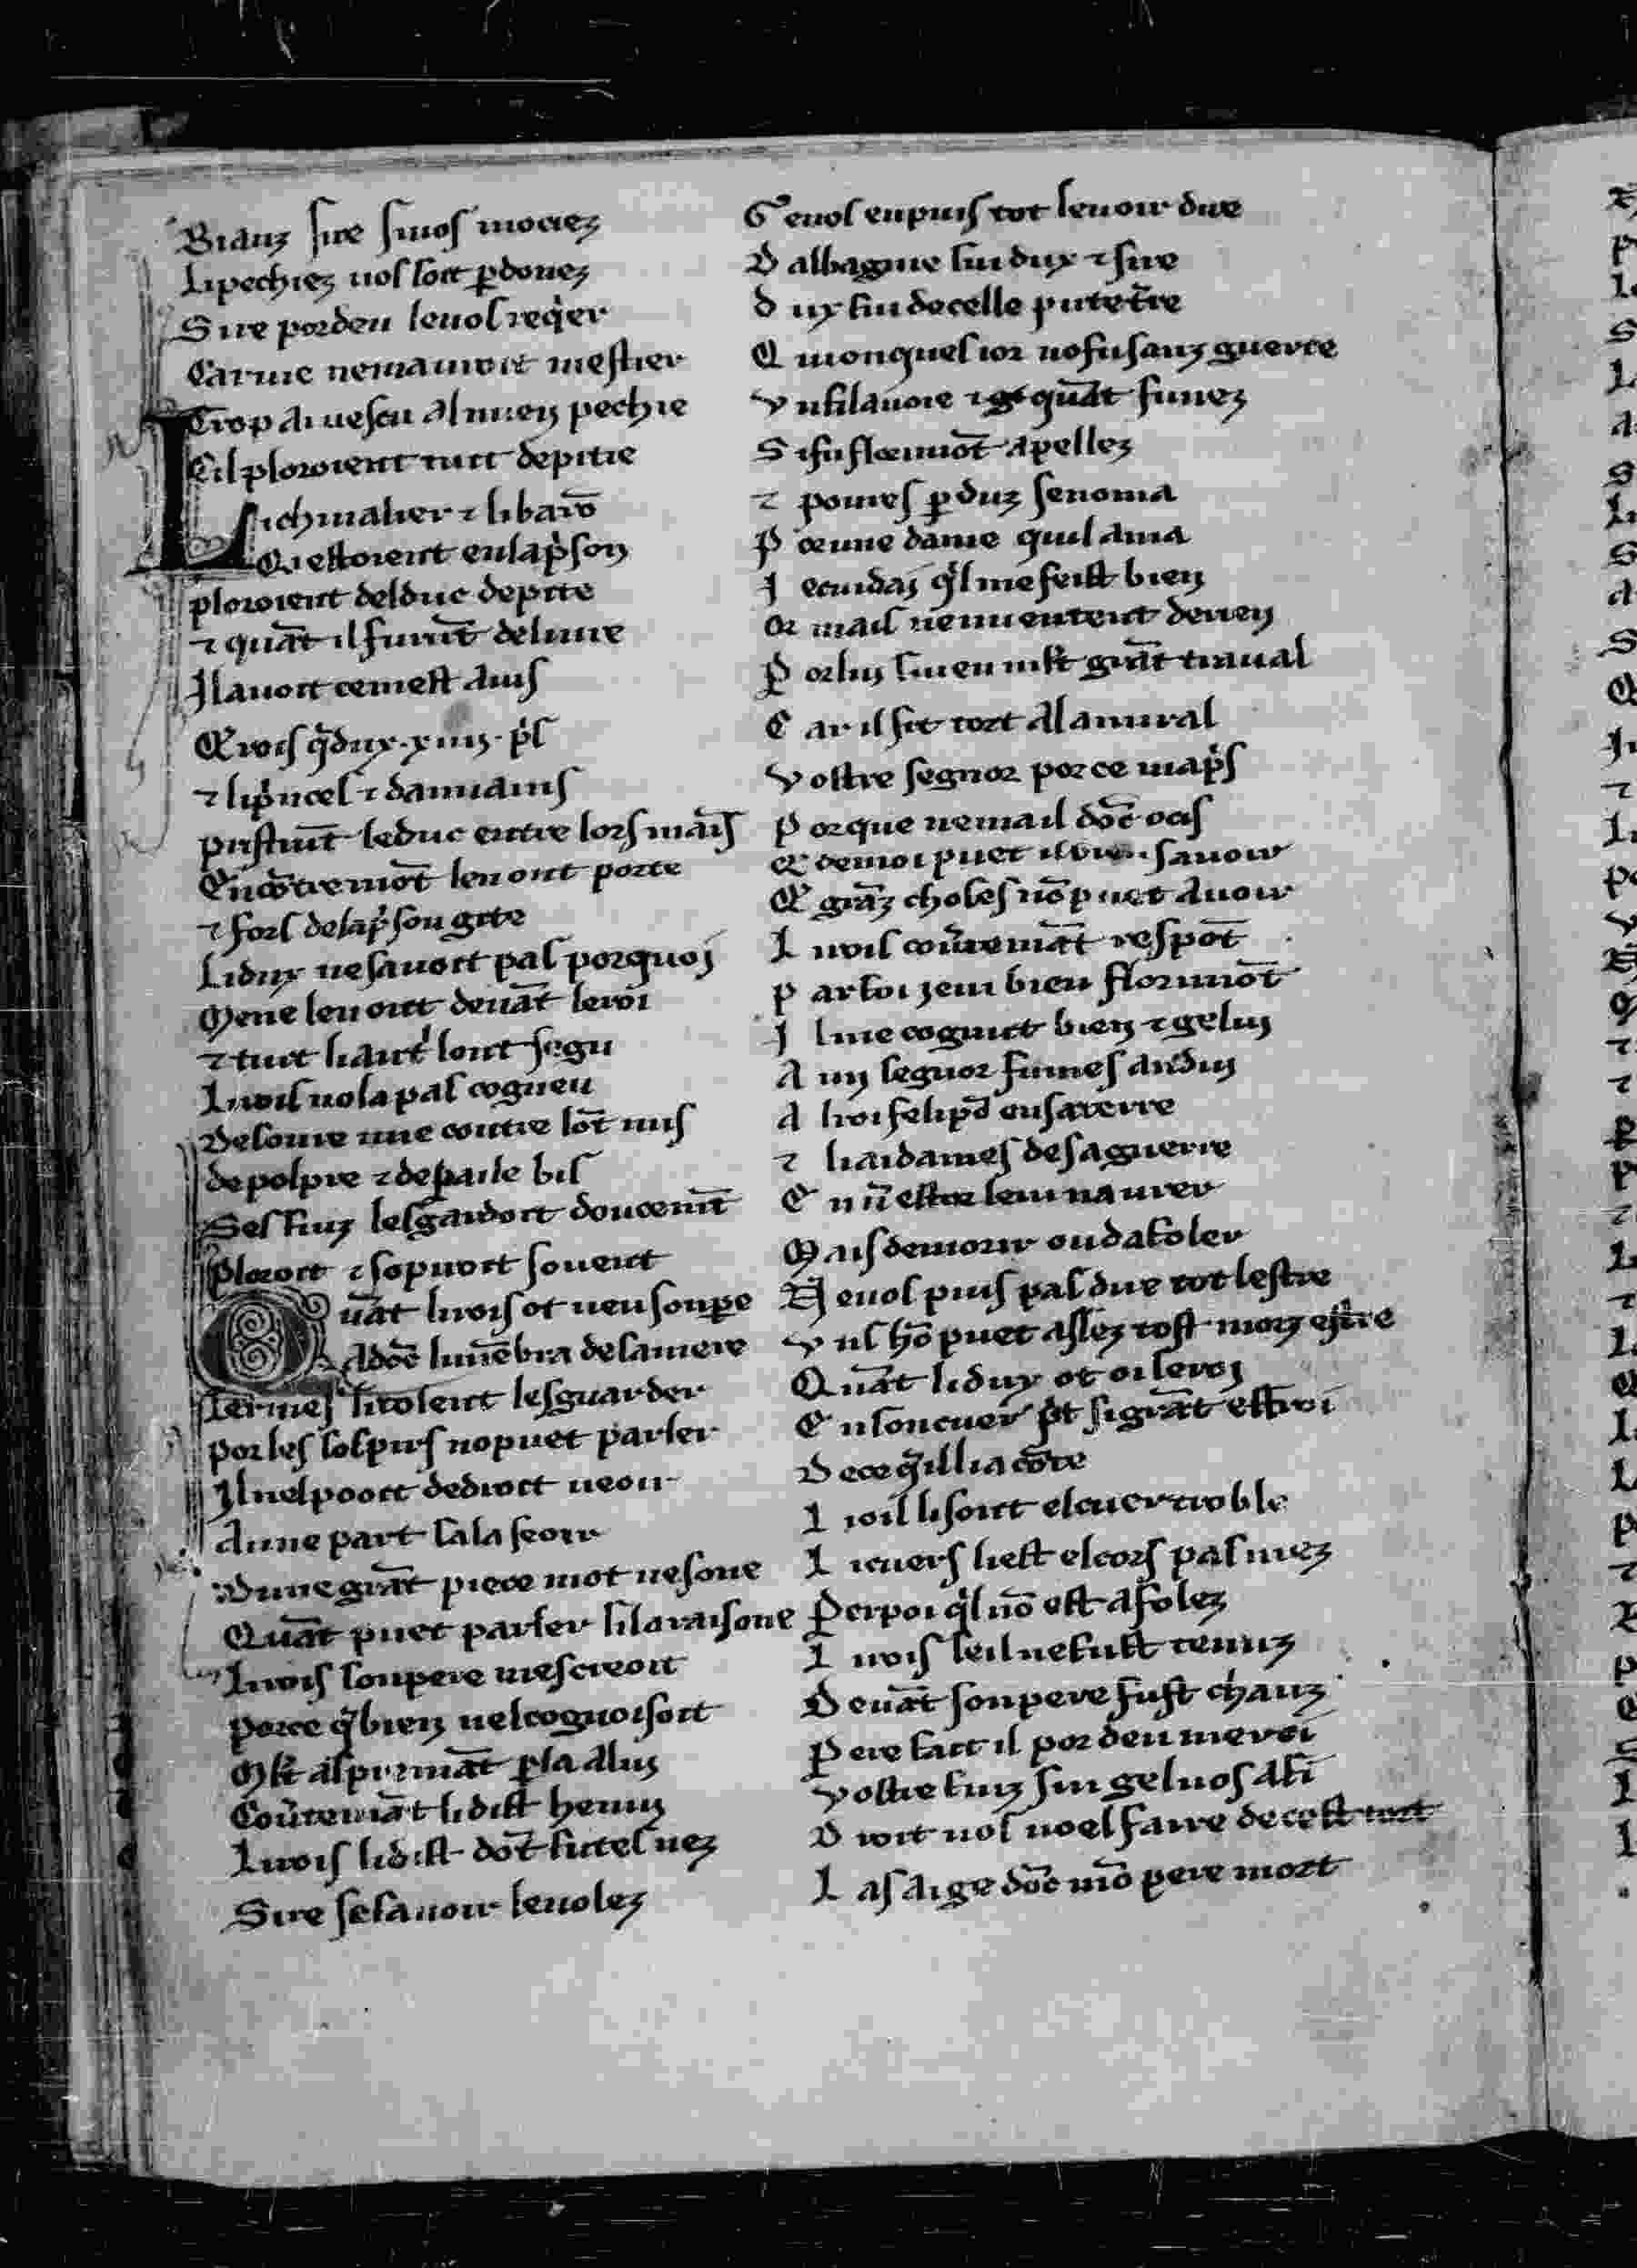 Biauz sire si uos mociez
Li pechiez uos soit ꝑdonez
Sire por deu se uos reqͥer
Car uie ne mauroit mestier
Trop ai uescu al mien pechie
Cil ploroient tuit de pitie
Li cheualier ⁊ li baro̅
Qi estoient en la pͥson
ploroient del duc de pitie
⁊ qua̅t il furu̅t deliure
Il auoit ce mest auis
Q rois q̃ dux .xiiij. pͥs
⁊ li pͥncel ⁊ damiains
pristru̅t le duc entre lors mai̅s
Enco̅tremo̅t len ont porte
⁊ fors de la pͥson gite
Li dux ne sauoit pas porquoi
Mene len ont deua̅t le roi
⁊ tuit li autͥ sont segu
Li rois no la pas cogneu
Desoure une coutre lo̅t mis
de polpre ⁊ de paile bis
Ses fiuz lesgardoit doucem̅t
Ploroit ⁊ sopiroit souent
Qua̅t li rois ot ueu son pe
Ado̅c li me̅bra de sa mere
Lermes li tolent lesguarder
por les sospirs no puet parler
Il nel pooit de droit ueoir
A une part sala seoir
Dune gra̅t piece mot ne sone
Qua̅t puet parler si laraisone
Li rois son pere mescreoit
porce q̃ bien nel cognoisoit
Mlt̅ aspirema̅t ꝑla a lui
Cou̅tema̅t li dist henui
Li rois li dist do̅t futes nez
Sire se sauoir le uolez
Ge uos en puis tot le uoir dire
D albagine sui dux ⁊ sire
D ux fui de celle pute t̅re
Q ui onques ior no fu sanz guerre
V n fil auoie ⁊ ge qua̅t fu nez
S i fu florimo̅t apellez
⁊ poures ꝑduz se noma
P or une dame quil ama
I e cuidai q̃l me feist bien
Or mais ne mi entent de rien
P or lui sui en mlt̅ gra̅t traual
C ar il fit tort al amiral
V ostre segnor por ce ma pͥs
P orque ne mail do̅c ocis
Q de moi puet il bien sauoir
Q gra̅z choses no̅ puet auoir
L i rois cou̅tema̅t respo̅t
P ar foi ieu bien florimo̅t
I l me cognuit bien ⁊ ge lui
A un segnor fumes andui
A l roi felipͥ en sa terre
⁊ li aidames de sa guerre
E n u̅ estor le ui naurer
M ais de morir ou dafoler
N e uos puis pas dire tot lestre
V us ho̅ puet assez tost morz estre
Q ua̅t li dux ot oi le roi
E n son cuer pͥt si gra̅t effroi
D e ce q̃l li a co̅te
L i oil li sont el cuer troble
L i cuers li est el cors pasmez
P er poi q̃l no̅ est afolez
L i rois seil ne fust tenuz
D eua̅t son pere fust chauz
P ere fait il por deu merci
V ostre fiuz sui ge luos afi
D roit uos uoel faire de cest tort
L as ai ge do̅c mo̅ pere mort